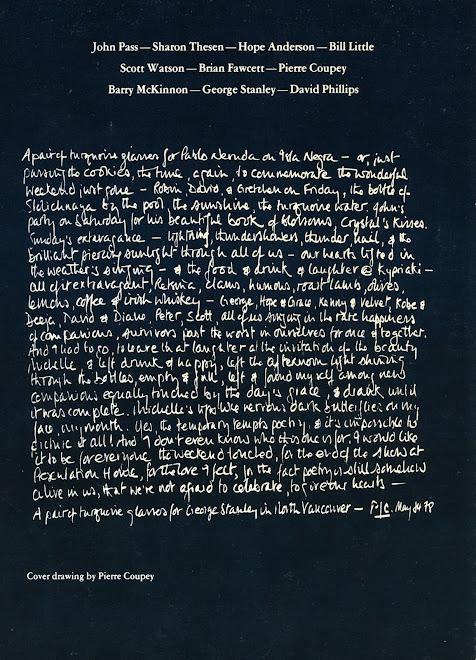 John Pass — Sharon Thesen — Hope Anderson — Bill Little
Scott Watson — Brian Fawcett — Pierre Coupey
Barry McKinnon — George Stanley — David Phillips
A pair of turquoise glasses for Pablo Neruda on Isla Negra — or, just
passing the cookies, the time, again, to commemorate the wonderful
weekend just gone — Robin, David, & Gretchen on Friday, the bottle of
Stolichnaya by the pool, the sunshine, the turquoise water. John's
party on Saturday for his beautiful book of blossoms, Crystal's Kisses.
Sunday's extravagance — lightning, thundershowers, thunder, hail, & the
brilliant piercing sunlight through all of us — our hearts lifted in
the weather's singing — & the food & drink & laughter @ Kypriaki —
all of it extravagant. Retsina, clams, humous, roast lamb, olives,
lemons, coffee & irish whiskey — George, Hope & Grace, Kenny & Velvet, Kobe &
David & Diane, Peter, Scott, all of us singing in the rare happiness
of companions, survivors past the worst in ourselves for once & together.
And I had to go, to leave that laughter at the invitation of the beauty
Michelle, & left drunk & happy, left the afternoon light shining
through the bottles, empty & full, left & found myself among new
companions equally touched by the day's grace, & drank until
it was complete. Michelle's lips like nervous dark butterflies on my
face, my mouth. Yes, the temporary tempts poetry, & it's impossible to
it all! And I don't even know who this one is for, I would like
it to be for everyone the weekend touched, for the end of the show at
Resolution House, for the love I feel, for the fact poetry is still somehow
alive in us, that we're not afraid to celebrate, to give our hearts —
A pair of turquoise glasses for George Stanley in North Vancouver — May 78
Cover drawing by Pierre Coupey